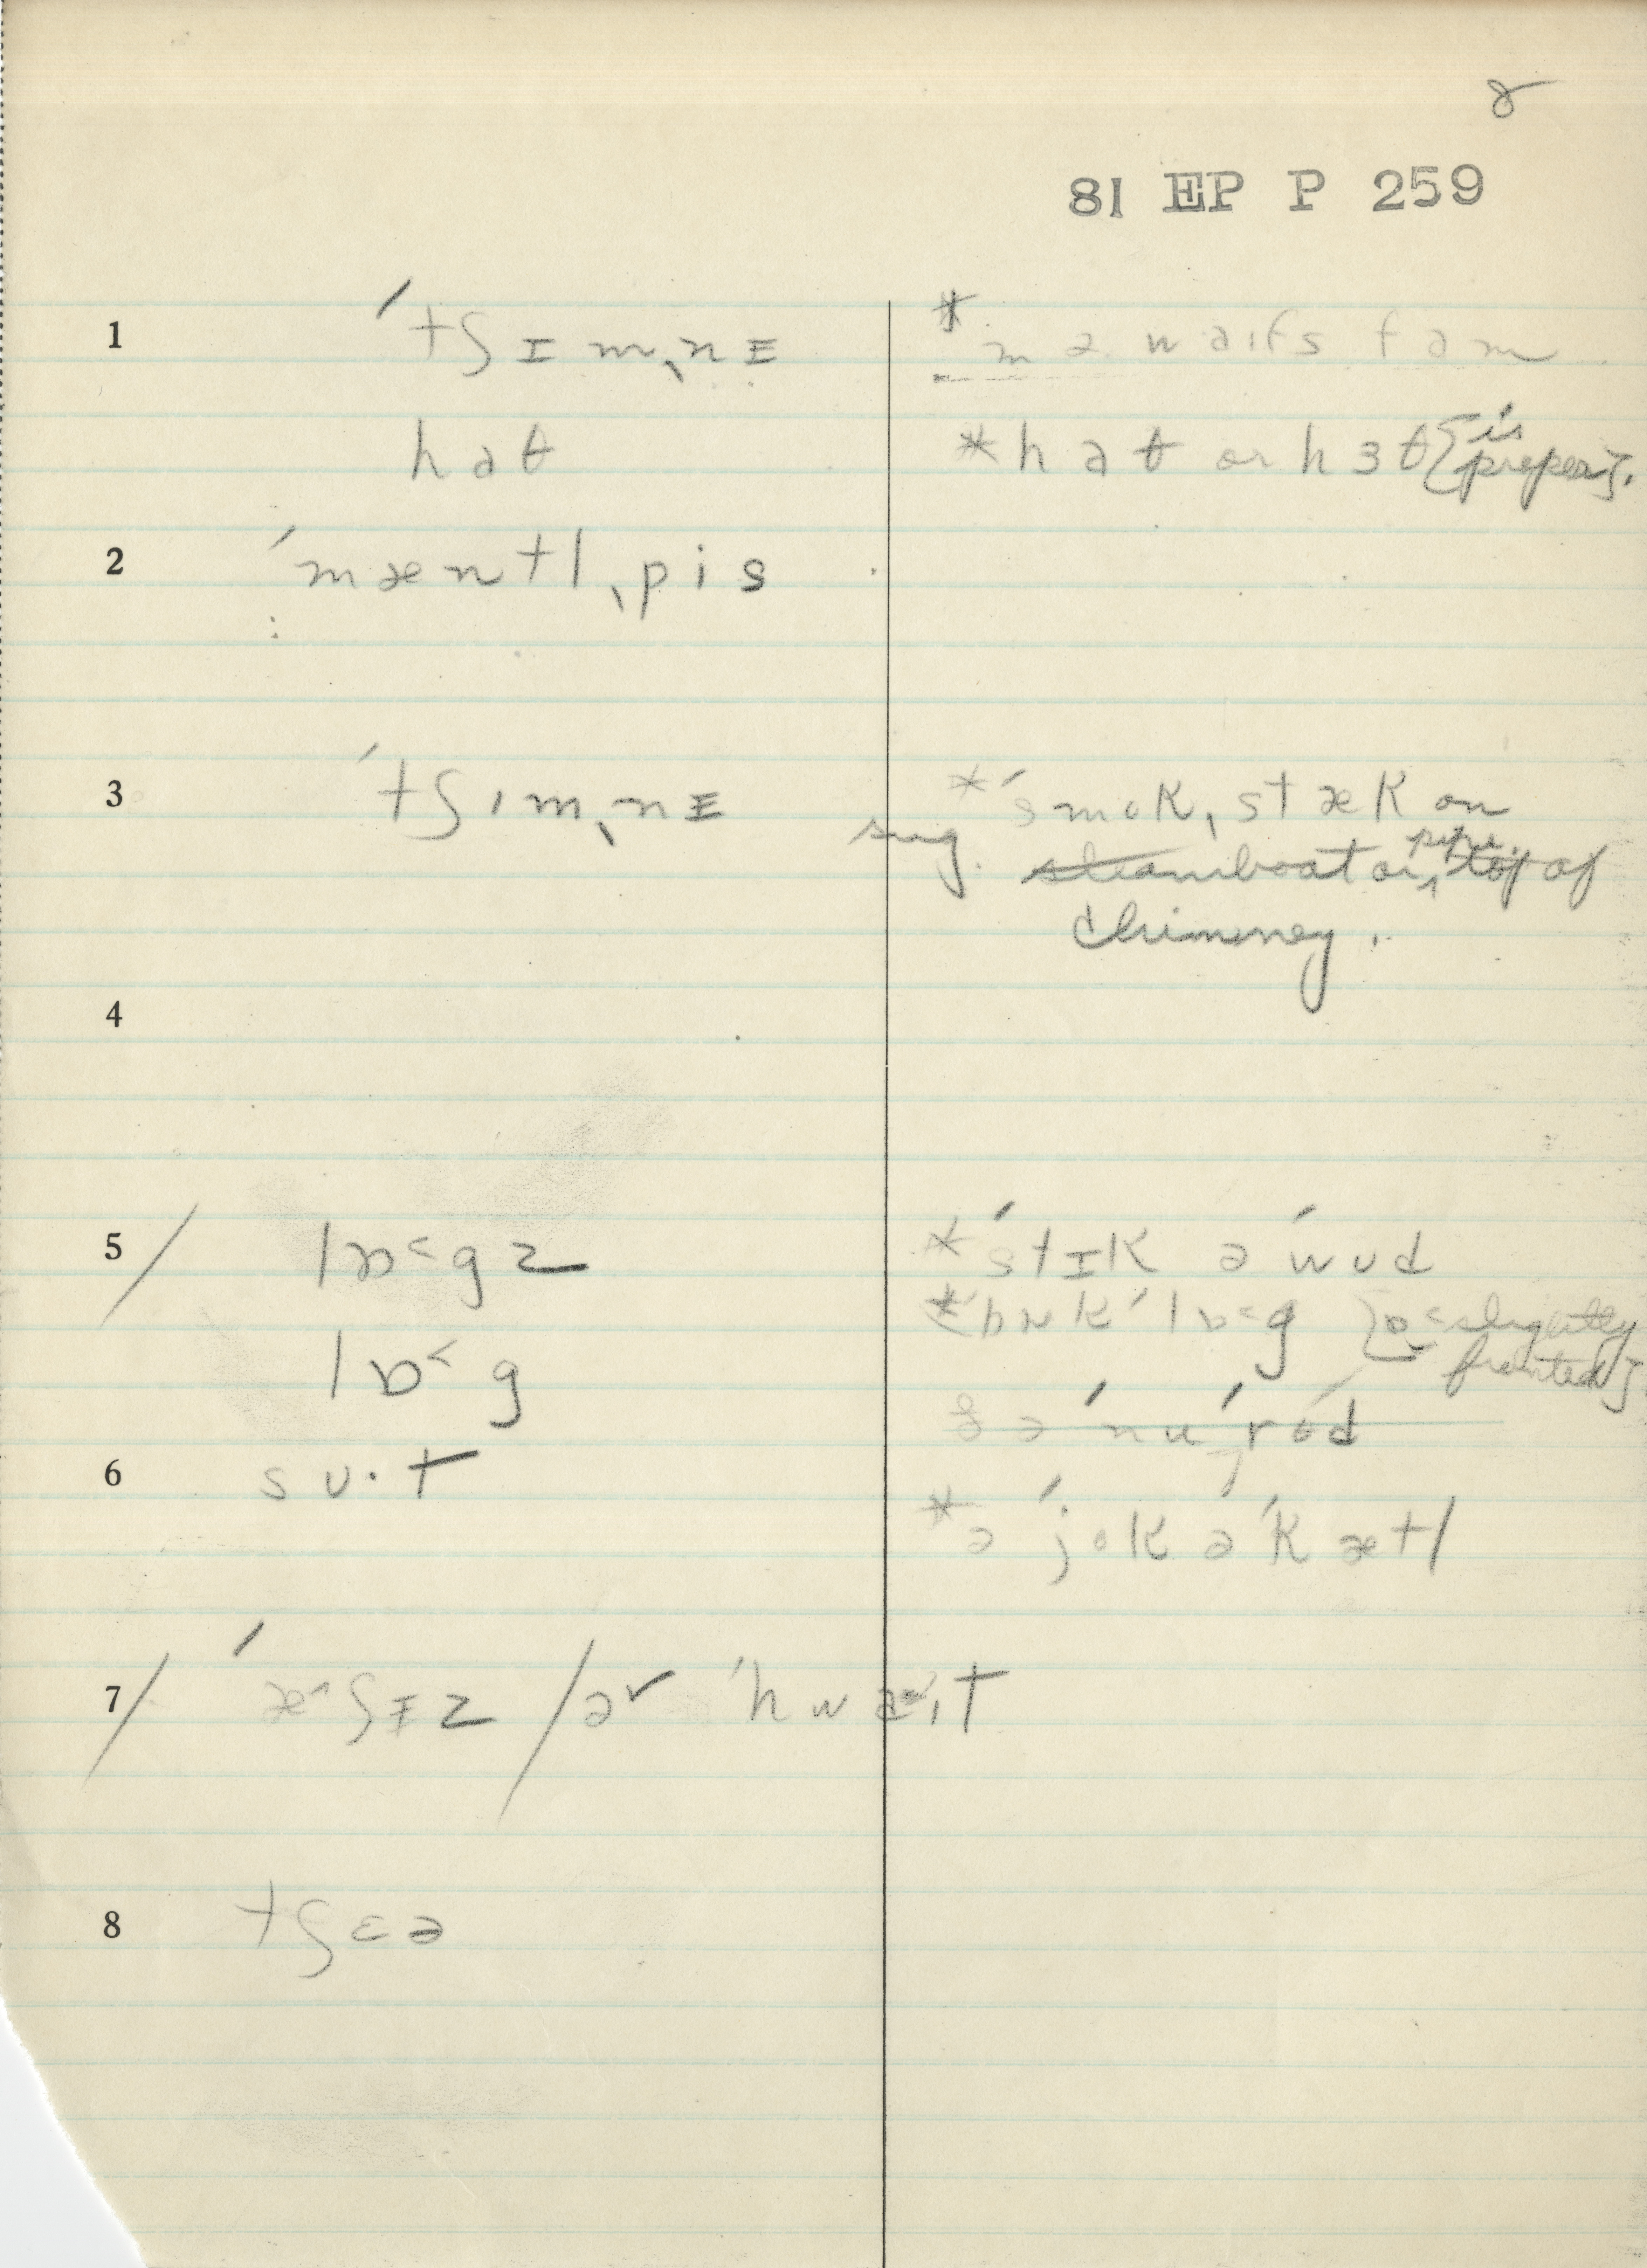 8
81 EP P 259
1 ˈtʃɪmˌnɪ * mə waɪfs fam
hat * hat or hɜt [is proper].
2 ˈmæntlˌpis
3 ˈtʃɪmˌnɪ sug. * ˈsmokˌstæk on
steamboat or pipe top of
chimney.
4
5 / lɒ˂gz * ˈstɪk ə ˈwʊd
lɒ˂g * bæk ˈlɒ˂g [ɒ˂ slightly fronted].
ə ˈnu ˈrod
6 sʊ·t * ə ˈjok ə ˈkætl
7 / ˈæ^ʃɪz / ər ˈhwaɪt
8 tʃɛə